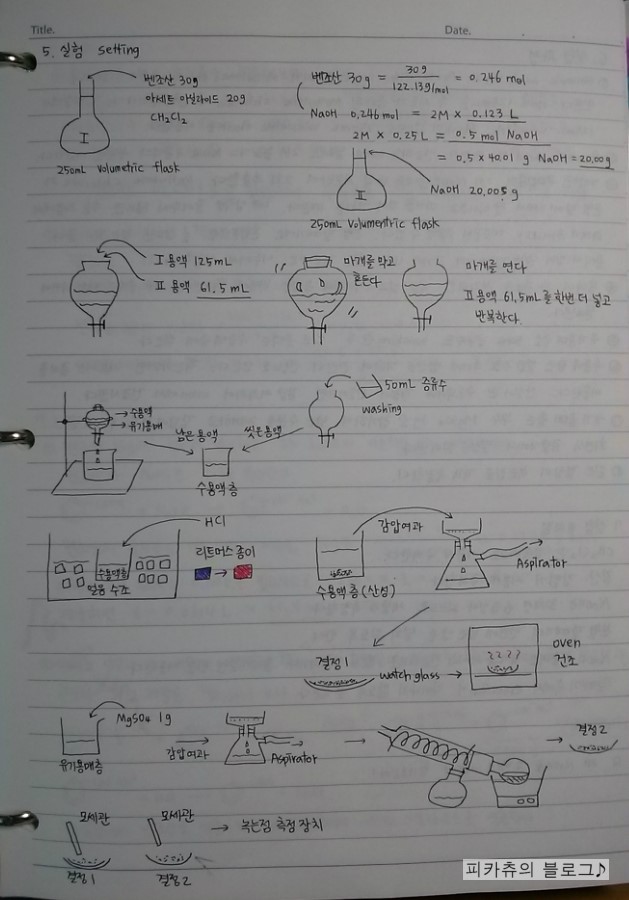 Title.
Date.
5. 실험 setting
벤조산 30g
아세트 아닐라이드 20g
CH2Cl2
I
250mL Volumetric flask
벤조산 30g = 30g / 122.13g/mol = 0.246 mol
NaOH 0.246 mol = 2M × 0.123 L
2M × 0.25L = 0.5 mol NaOH
= 0.5 × 40.01 g NaOH = 20.00g
II
NaOH 20.005 g
250mL Volumentric flask
I 용액 125mL
II 용액 61.5mL
마개를 막고
흔든다
마개를 연다
II 용액 61.5mL를 한번 더 넣고
반복한다.
→수용액
→유기용매
남은 용액
씻은용액
수용액층
50mL 증류수
washing
HCl
수용액층
얼음 수조
리트머스 종이
→
감압여과
수용액 층 (산성)
Aspirator
결정1
watch glass →
oven
건조
MgSO4 1g
유기용매층
감압여과
Aspirator
→
→
결정2
모세관
모세관
→ 녹는점 측정 장치
결정1
결정2
피카츄의 블로그♪